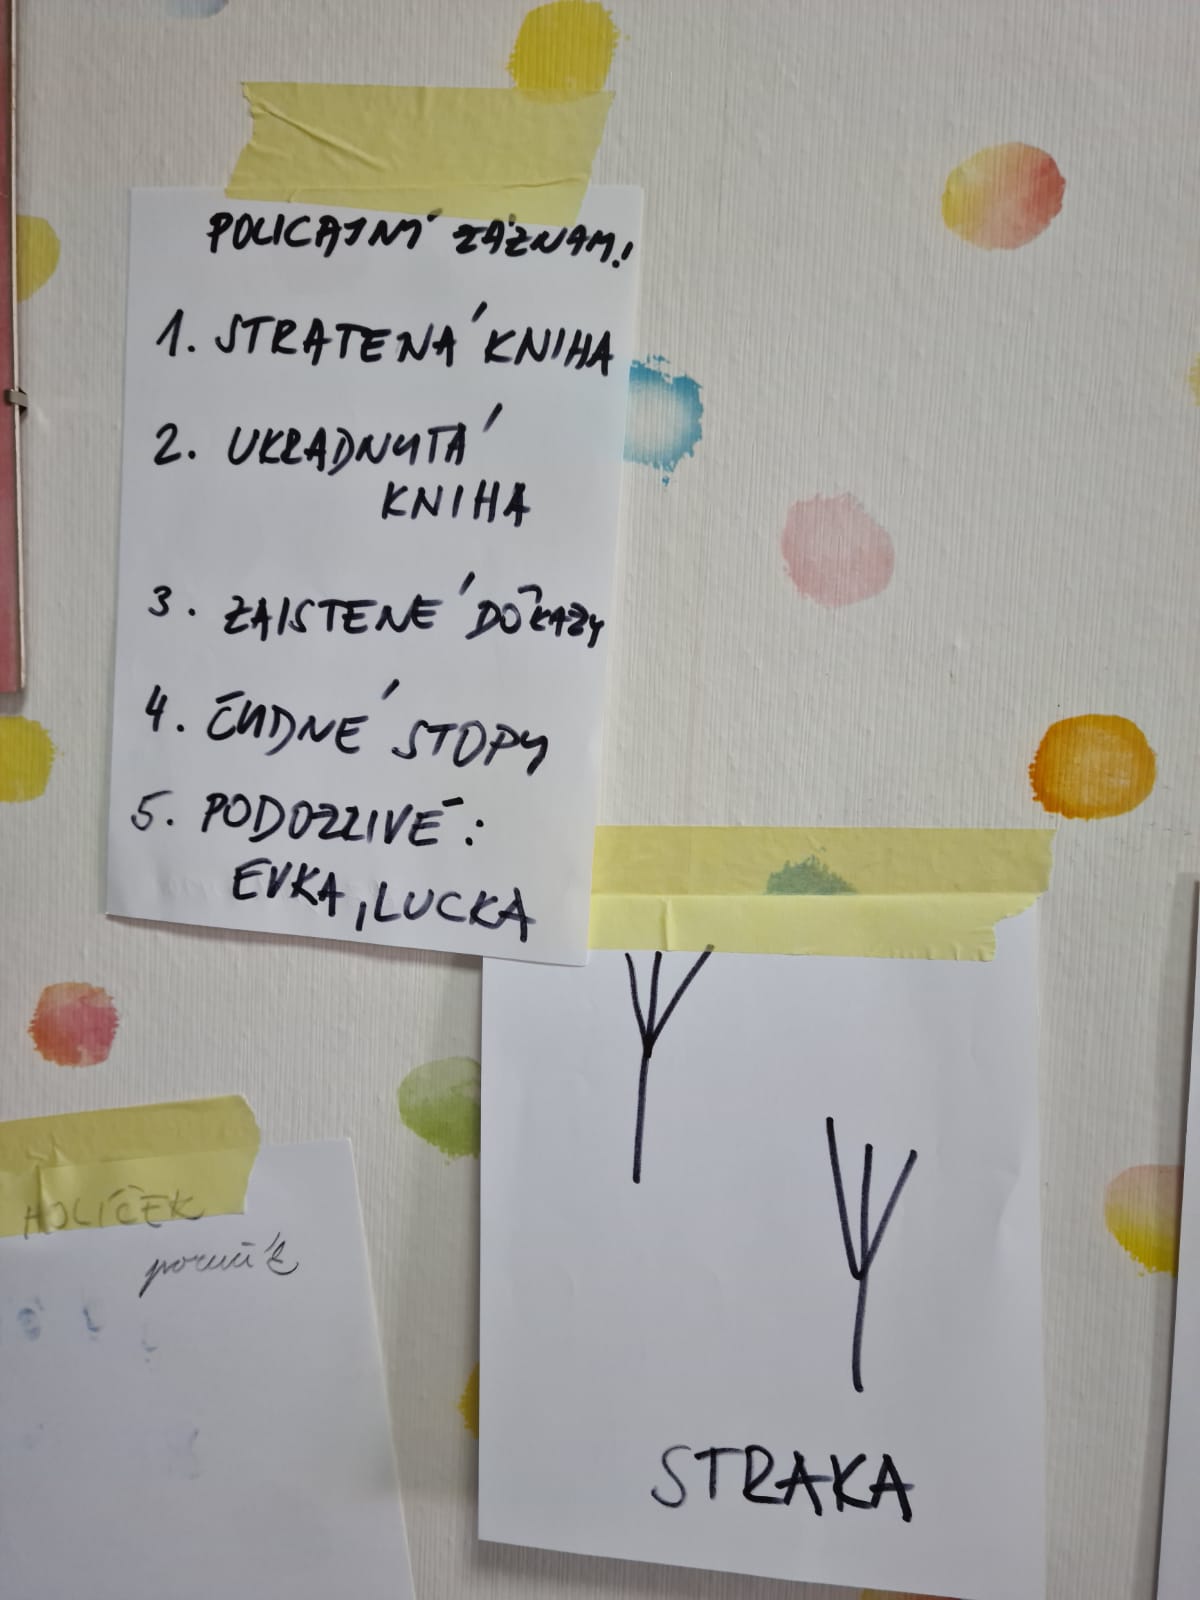 POLICAJNÝ ZÁZNAM!
1. STRATENÁ KNIHA
2. UKRADNUTÁ
KNIHA
3. ZAISTENÉ DÔKAZY
4. ČUDNÉ STOPY
5. PODOZRIVÉ:
EVKA, LUCKA
HOLÍČEK
poručík
STRAKA